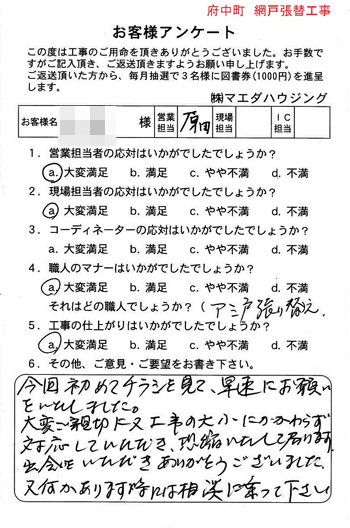 府中町 網戸張替工事
お客様アンケート
この度は工事のご用命を頂きありがとうございました。お手数で
すがご記入頂き、ご返送頂きますようお願い申し上げます。
ご返送頂いた方から、毎月抽選で3名様に図書券(1000円)を進呈
します。
㈱マエダハウジング
お客様名 様 営業担当 原田 現場担当 IC担当
1. 営業担当者の応対はいかがでしたでしょうか?
a. 大変満足 b. 満足 c. やや不満 d. 不満
2. 現場担当者の応対はいかがでしたでしょうか?
a. 大変満足 b. 満足 c. やや不満 d. 不満
3. コーディネーターの応対はいかがでしたでしょうか?
a. 大変満足 b. 満足 c. やや不満 d. 不満
4. 職人のマナーはいかがでしたでしょうか?
a. 大変満足 b. 満足 c. やや不満 d. 不満
それはどの職人でしょうか?(アミ戸張り替え
5. 工事の仕上がりはいかがでしたでしょうか?
a. 大変満足 b. 満足 c. やや不満 d. 不満
6. その他、ご意見・ご要望をお書き下さい。
今回初めてチラシを見て、早速にお願い
をいたしました。
大変ご親切に又工事の大小にかかわらず
対応していただき、恐縮いたして居ります。
出会いをいただきありがとうございました。
又何かあります時には相談に乗って下さい